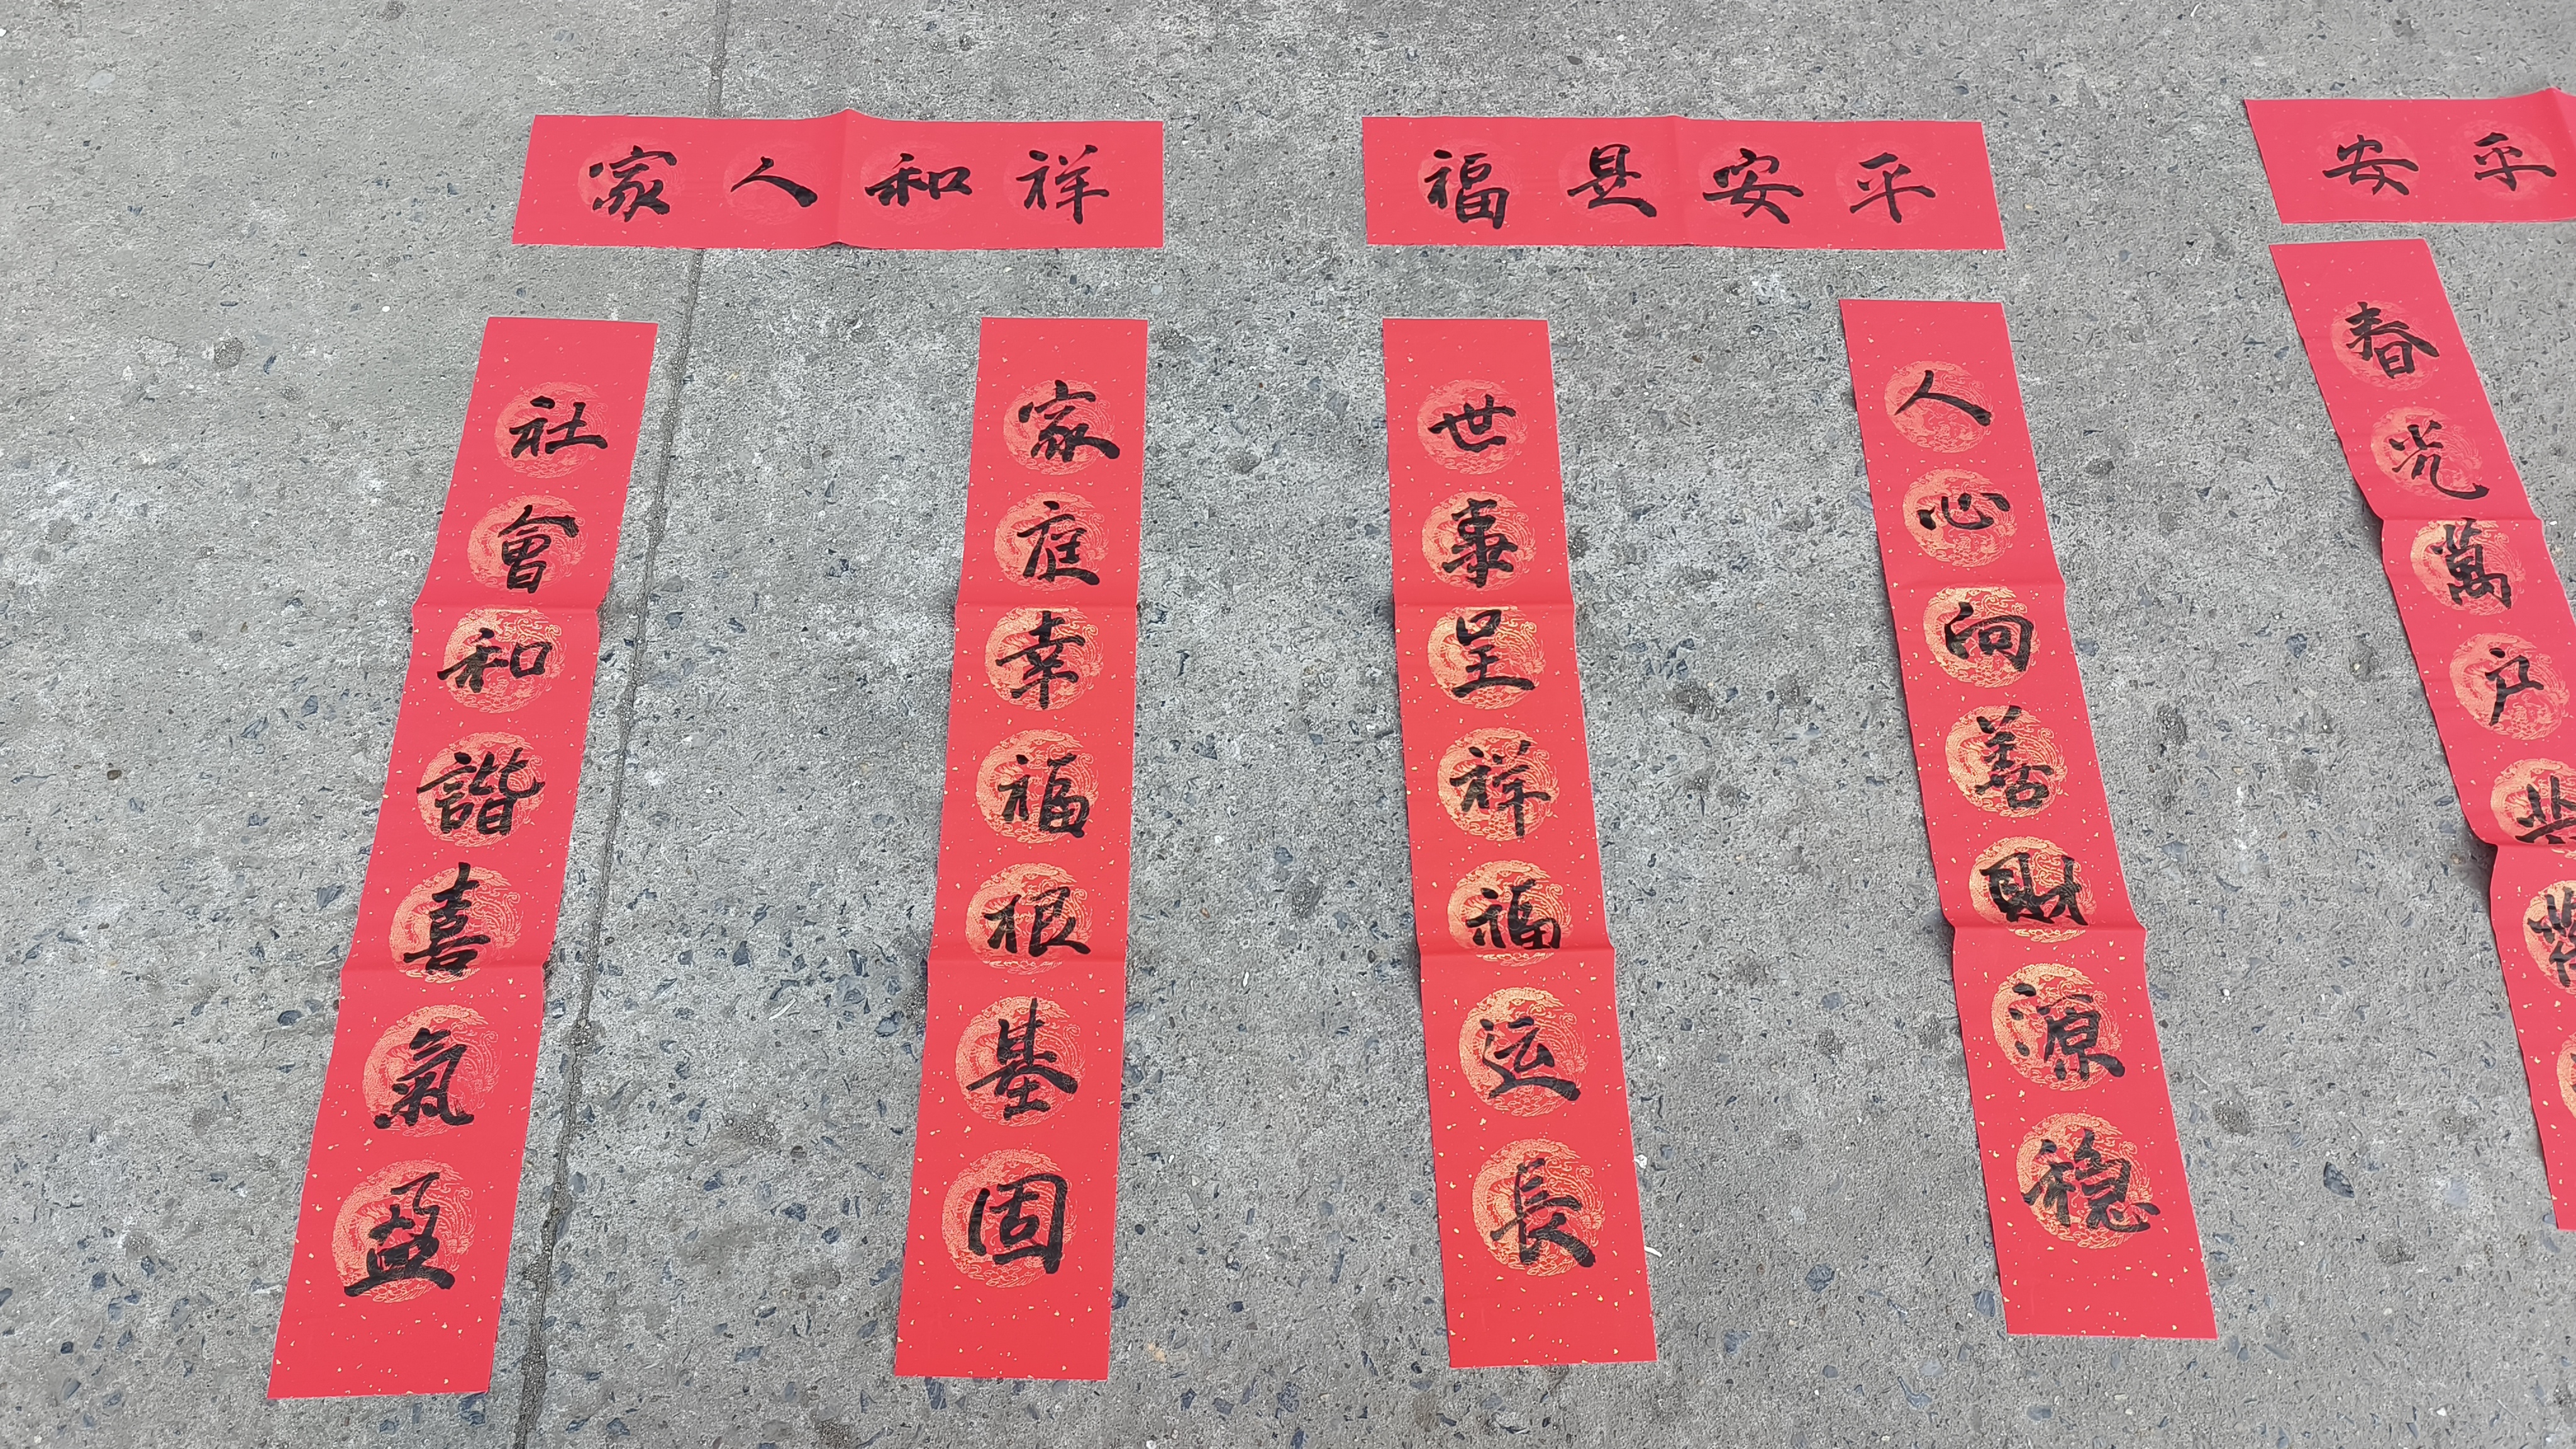 家人和祥
社會和諧喜氣盈
家庭幸福根基固
福是安平
世事呈祥福运長
人心向善財源稳
安平
春光萬户